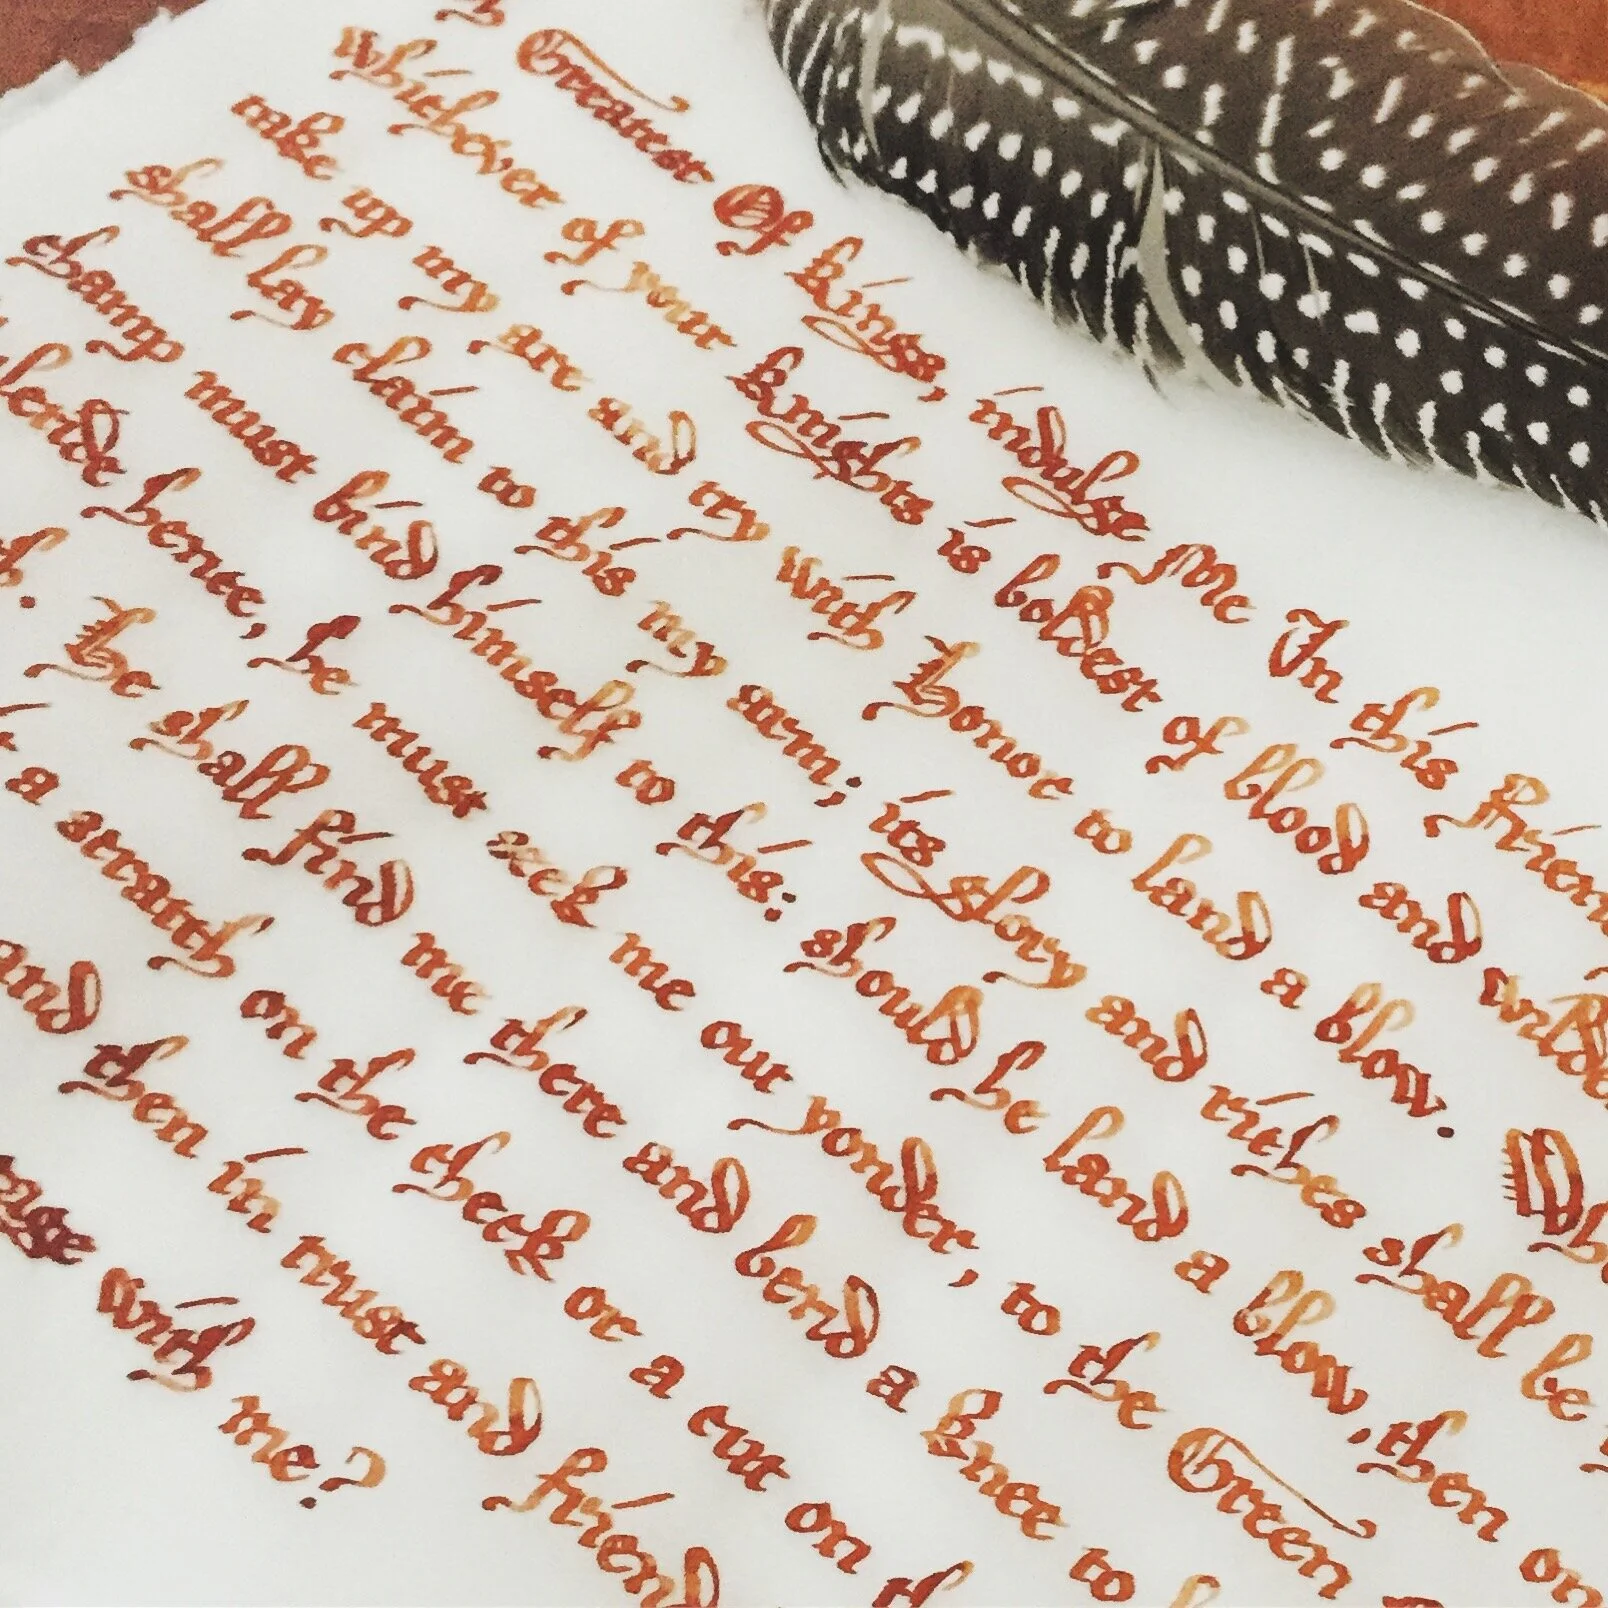 Greatest Of kings, indulge Me In this frien
whichever of your knights is boldest of blood and wilde
take up my axe and try with Honor to land a blow. Who
shall lay claim to this my arm; its glory and riches shall be
champ must bind himself to this: should he land a blow, then on
uletide hence, he must seek me out yonder, to the Green
th. He shall find me there and bend a knee to
a scratch on the cheek or a cut on th
and then in trust and friend
with me?